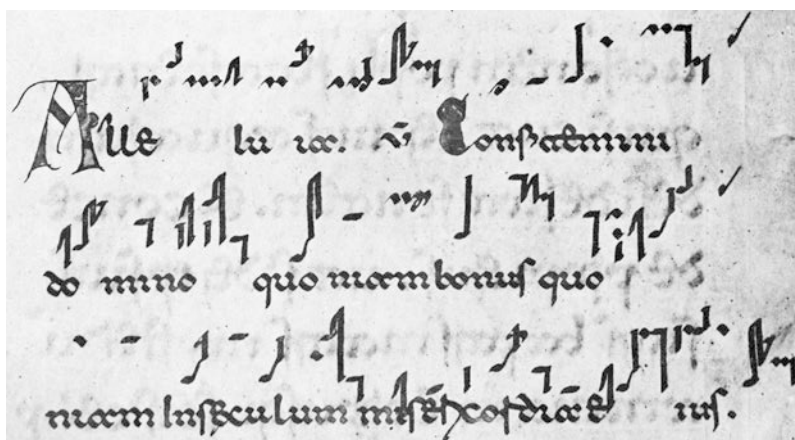 Alle lu ia. V̄ Confitemini
do mino quo niam bonus quo
niam In sęculum misericordia e ius.